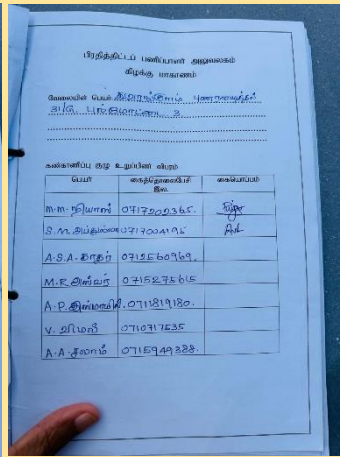 பிரதித்திட்டப் பணிப்பாளர் அலுவலகம்
கிழக்கு மாகாணம்
வேலையின் பெயர்
31/G புல்மோட்டை 3
கண்காணிப்பு குழு உறுப்பினர் விபரம்
பெயர் கைத்தொலைபேசி இல. கையொப்பம்
M.M. நியாஸ் 0717202365.
S.M. அப்துல்லா 0717004195
A.S.A. காதர் 0712560969.
M.R. அன்வர் 0715275615
A.P. இஸ்மாயில். 0711819180.
V. விமல் 0710717535
A.A. சலாம் 0715949388.